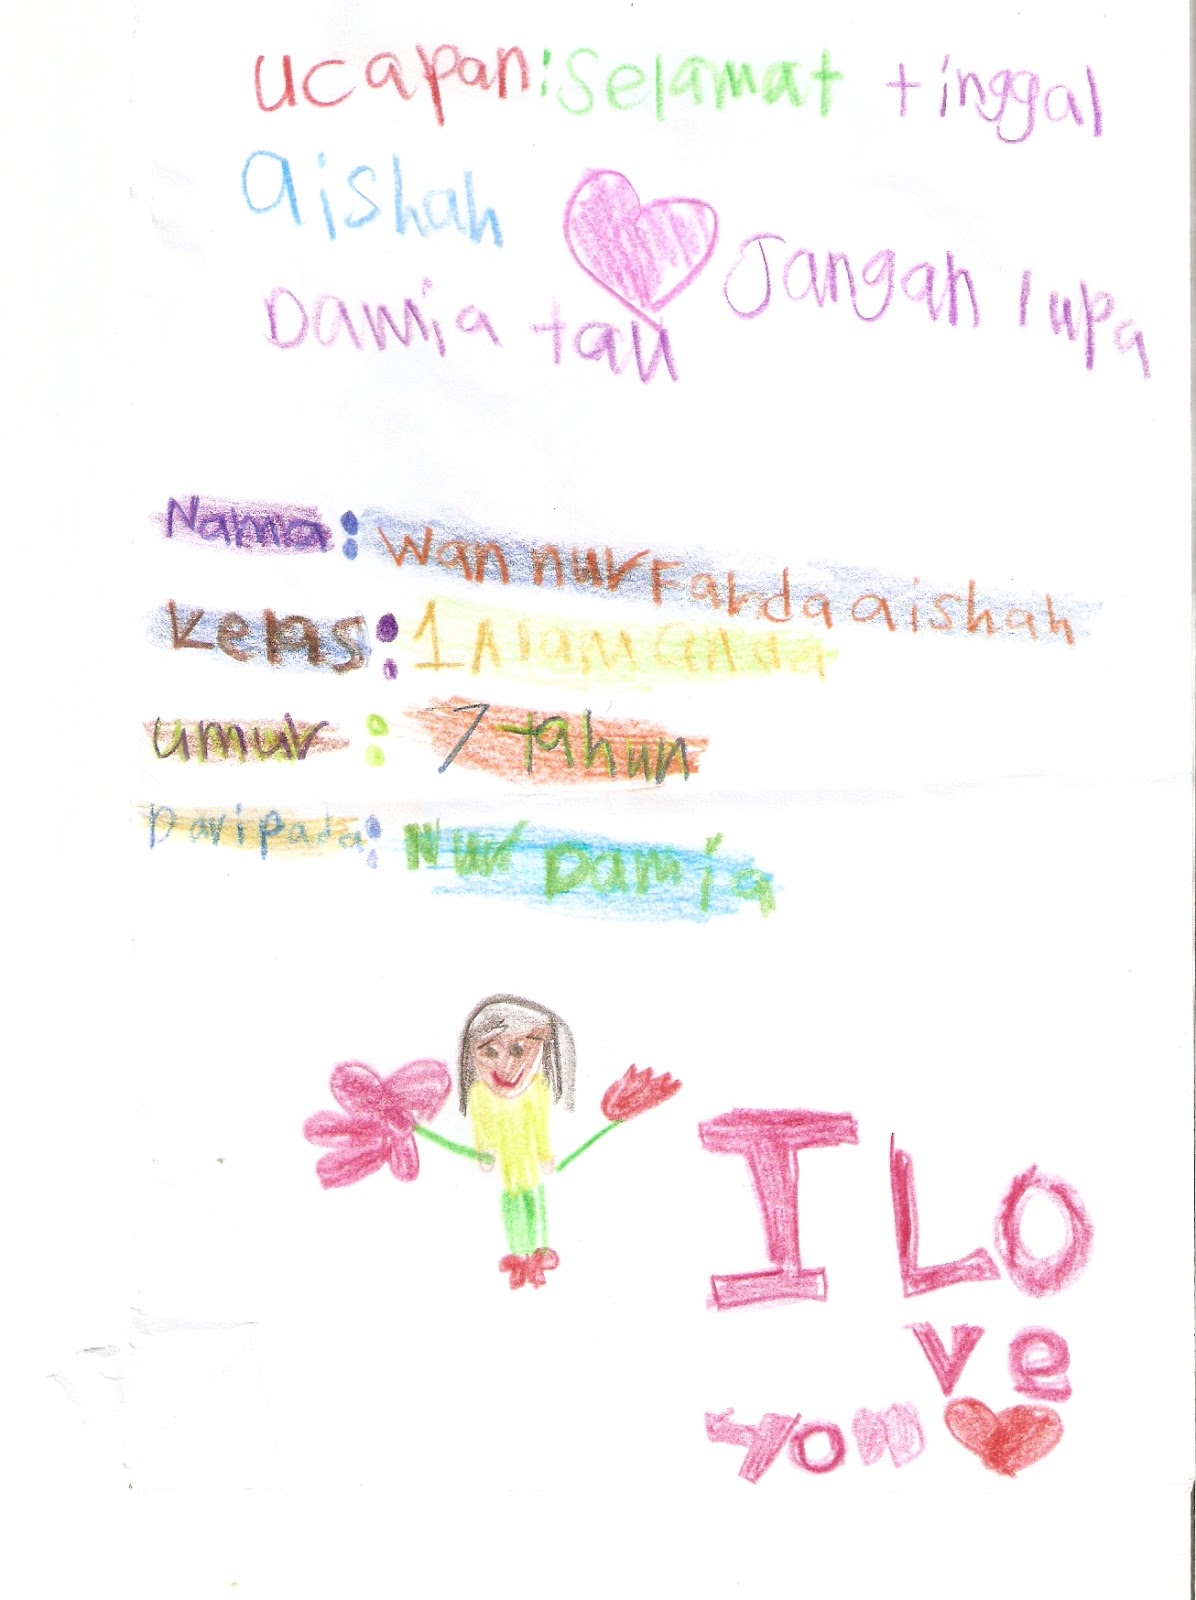 ucapan: Selamat tinggal
aishah
Jangan lupa
Damia tau
Nama: Wan nur Farda aishah
Kelas: 1 Alamanda
umur: 7 tahun
Daripada: Nur Damia
I LO
ve
you